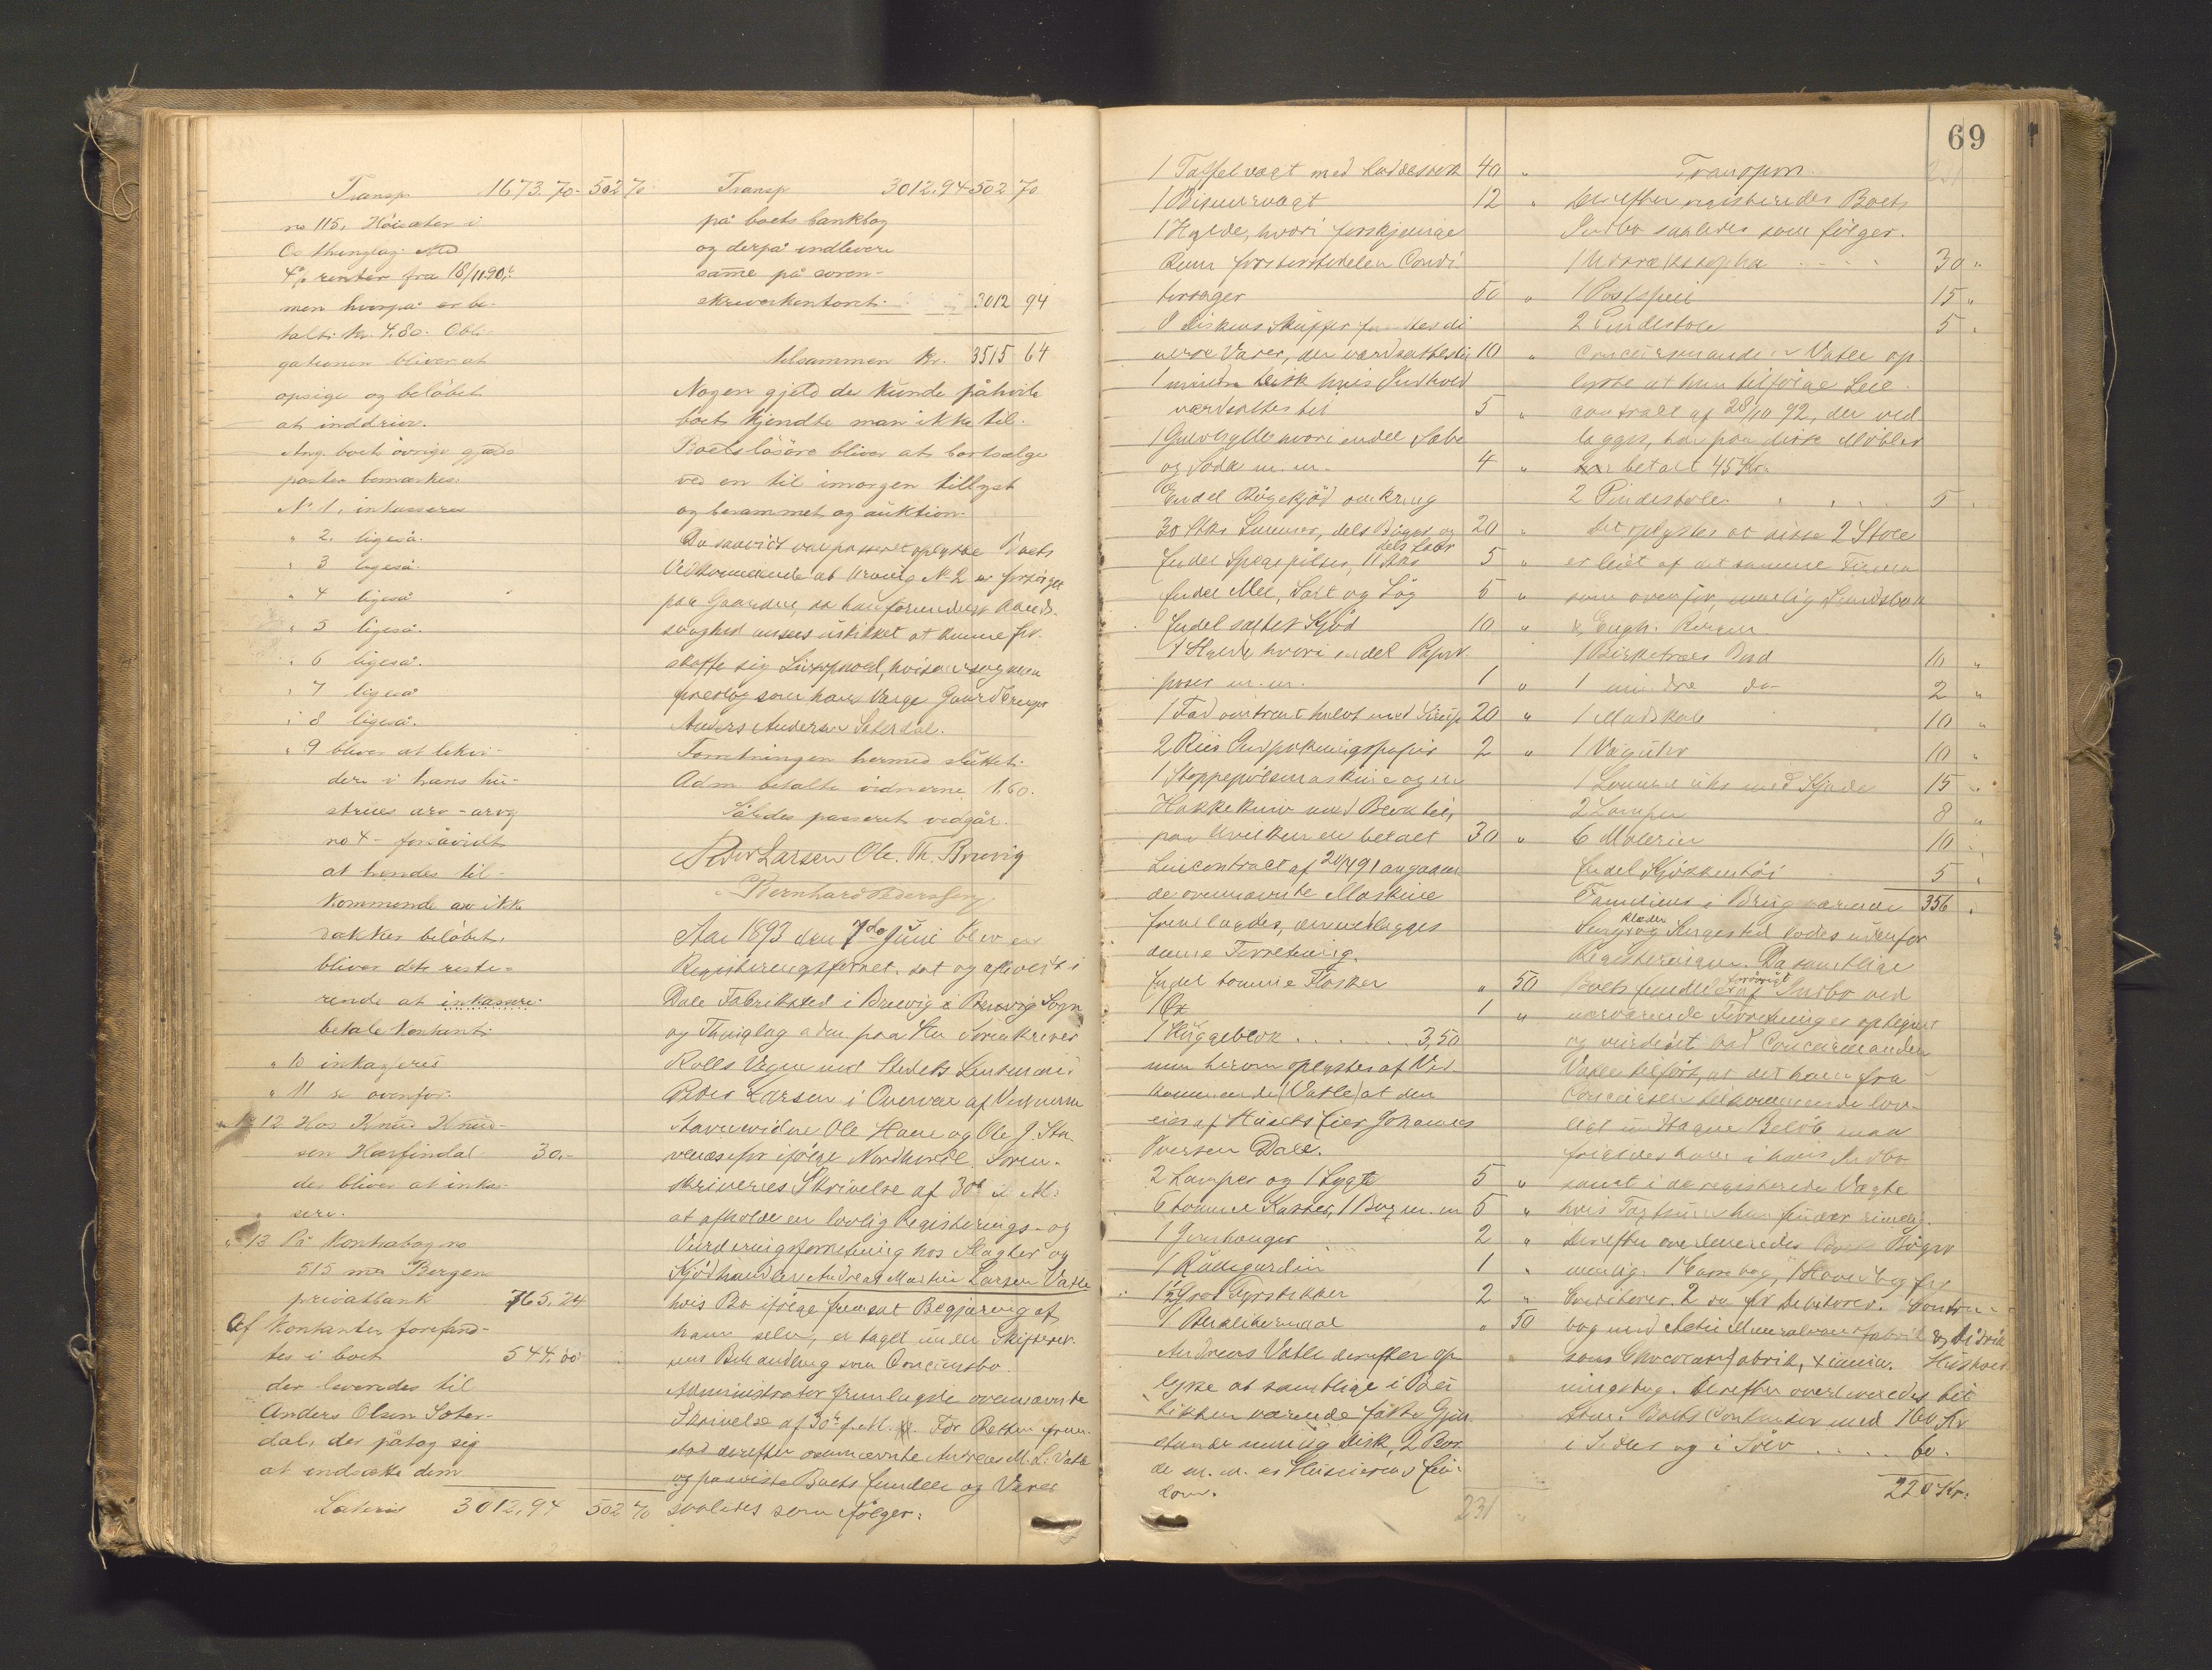 Transp 1673.70 - 502 70
no 115, Höisæter i
4% renter fra 18/11 90,
men hvorpå er be-
talt kr. 4.80. Obli-
gationen bliver at
opsige og belöbet
at inddrive.
Ang. boets övrige gjælds
poster bemærkes:
No 1, inkasseres
" 2. ligeså.
" 3 ligeså.
" 4 ligeså
" 5 ligeså.
" 6 ligeså.
" 7 ligeså
" 8 ligeså.
" 9 bliver at likvi-
dere i hans hu-
strues arv - arvg
no 4 - forsåvidt
at hendes til-
kommende arv ikke
dækker belöbet,
bliver det reste-
rende at inkassere.
betale kontant.
" 10 inkasseres
" 11 se ovenfor.
" 12 Hos Knud Knud-
sen Hæsfindal 30,-
der bliver at inkas-
sere.
" 13 På Kontrabog no
515 med Bergens
privatbank 765,24
Af Kontanter forefand-
tes i boet 544,00
der leveredes til
Anders Olsen Soter-
dal, der påtog sig
at indsætte dem
Lateris 3012,94 502 70
Transp 3012.94 502 70
på boets bankbog
og derpå indlevere
samme på soren-
skriverkontoret. 3012 94
tilsammen kr. 3515 64
Nogen gjeld der kunde påhvile
boet kjendte man ikke til.
Boets lösöre bliver at bortsælge
ved en til imorgen tillyst
og berammet og auktion.
Da saavidt var passeret oplyste Boets
Vedkommende at Arving No 2 er forsörget
paa Gaarden, da han formedelst Aands-
svaghed ansees uskikket at kunne for-
skaffe sig Livsophold, hvisaarsag man
foreslog som hans Værge Gaardbruger
Anders Andersen Soterdal.
Forretningen hermed sluttet.
Adm. betalte vidnerne 1,60.
Således passeret vedgår.
Peder Larsen Ole. Th. Bruvig
Bernhard Pedersen
Aar 1893 den 7de Juni blev en
Registeringsforret. sat og afholdt i
Dale Fabriksted i Bruvig i Bruvig Sogn
og Thinglag adm. paa Hr Sorenskriver
Rolls Vegne ved Stedets Lensmand
Peder Larsen i Overvær af Vidnerne
Stavnevidne Ole Hane og Ole J. Sta-
venæs for ifölge Nordhordl. Soren-
skriveries Skrivelse af 30te f. M.
at afholde en lovlig Registerings- og
Vurderingsforretning hos Slagter og
Kjödhandler Andreas Martin Larsen Vatle
hvis Bo ifölge fremsat Begjæring af
ham selv, er taget under Skifteret-
tens Behandling som Concursbo.
Administrator fremlagde ovennævnte
Skrivelse af 30te f. M. For Retten frem-
stod derefter ovennævnte Andreas M. L. Vatle
og paaviste Boets Eiendele og Varer
saaledes som fölger:
69
1 Taffelvægt med Lodder 40 "
1 Bismervægt 12 "
1 Hylde, hvori forskjellige
Rum forefindes endelen Condi-
torsager 50 "
8 Diskens Skuffer fandtes di-
verse Varer, der værdsattes til 10 "
1 mindre Disk hvis Indhold
værdsattes til 5 "
1 Gulvhylle hvori endel Sæbe
og Soda m. m. 4 "
Endel Rögekjöd omkring
30 Stkr 20 "
dels Laar
Endel Spegepölser, 11 Stkr 5 "
Endel Mel, Salt og Lög 5 "
Endel saltet Kjöd 10 "
1 Hylde hvori endel Papir-
poser m. m. 1 "
1 Fad omtrent halvt med Sirup 20 "
2 Riis Indpakningspapir 2 "
1 Stoppepölsemaskine og en
Hakkekniv med Bræt til,
paa hvilken er betalt 30 "
Leiecontract af 20/4 91 angaaen-
de ovennævnte Maskine
fremlagdes, der vedlægges
denne Forretning.
Endel tomme Flasker " 50
1 Öx 1 "
1 Huggeblok . . . . . . . 3,50
men herom oplystes af Ved-
kommende (Vatle) at den
eies af Husets Eier Johannes
Iversen Dale.
2 Lamper og 1 Lygte 5 "
6 tomme Kasser, 1 Bog m. m 5 "
1 Jernstanger 2 "
1 Rullegardin 1 "
1 1/2 Gros Fyrstikker 2 "
1 " 50
Andreas Vatle derefter op-
lyste at samtlige i Bu-
tikken værende faste Gjen-
stande nemlig Disk, 2 Bor-
de m. m. er Huseierens Eien-
dom.
231 "
Transport 231
Derefter registeredes Boets
Indbo saaledes som fölger.
1 Udtrækssopha . . . . 30 "
1 Postspeil 15 "
2 Pindestole 5 "
Concursmanden Vatle op-
lyste at han tilfölge Leie-
contract af 28/10 92, der ved-
lægges, har paa disse Möbler
betalt 45 Kr.
2 Pindestoler 5 "
Det oplystes at disse 2 Stole
er leiet af det samme Firma
som ovenfor, nemlig Sundsbak
& Engh. Bergen
1 Birketræes Bord 10 "
1 mindre do 2 "
1 Madskab 10 "
1 Væguhr 10 "
1 Lommeuhr med Kjede 15 "
2 Lamper 8 "
6 Malerier 10 "
Endel Kjökkentöi 5 "
Familiens i Brug værende 356 "
klæder
Senge og Sengested lodes udenfor
Registeringen. Da samtlige
forövrigt
Boets Eiendele af Indbo ved
nærværende Forretning er optegnet
og vurderet bad Concursmanden
Vatle tilfört, at det ham fra
Concursen tilkommende lov-
lige undtagne Belöb maa
forlods ham i hans Indbo
samt i de registerede Vægte
hvis Taxtsum han finder rimelig.
Derefter overleveredes Boets Böger
nemlig: 1 Cassebog, 1 Hovedbog for
Creditorer. 2 do for Debitorer. Contra-
bog med Actie Mineralvandfabrik og Didrik
sens Chocoladefabrik, Xiania. Hushold-
ningsbog. Derefter overleveredes til
Adm: Boets Contanter med 160 Kr
i Sedler og i Sölv . . . . . 60.
220 Kr.